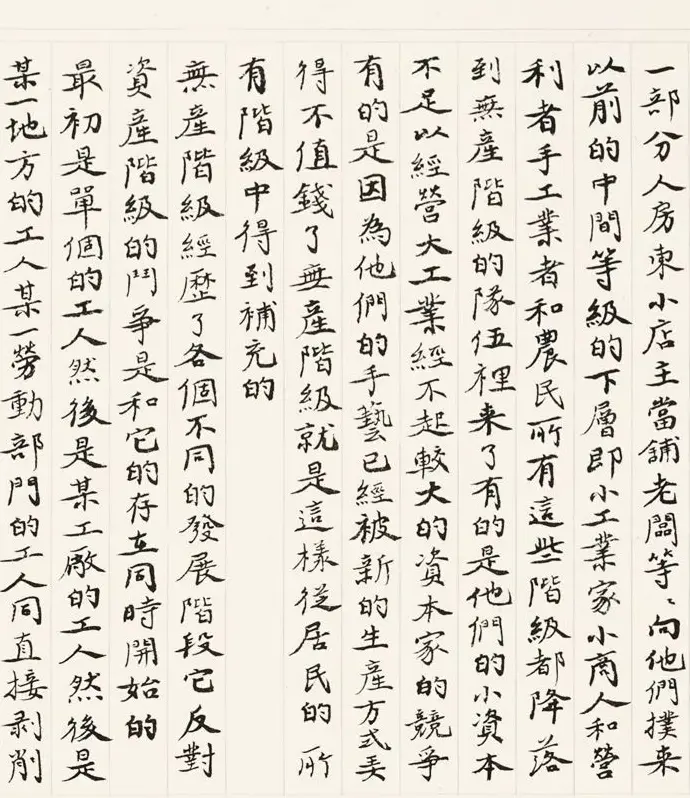 一部分人房東小店主當舖老闆等〻向他們撲来
以前的中間等級的下層即小工業家小商人和營
利者手工業者和農民所有這些階級都降落
到無產階級的隊伍裡来了有的是他們的小資本
不足以經營大工業經不起較大的資本家的競爭
有的是因為他們的手藝已經被新的生產方式弄
得不值錢了無產階級就是這樣從居民的所
有階級中得到補充的
無產階級經歷了各個不同的發展階段它反對
資產階級的鬥爭是和它的存在同時開始的
最初是單個的工人然後是某工廠的工人然後是
某一地方的工人某一勞動部門的工人同直接剥削